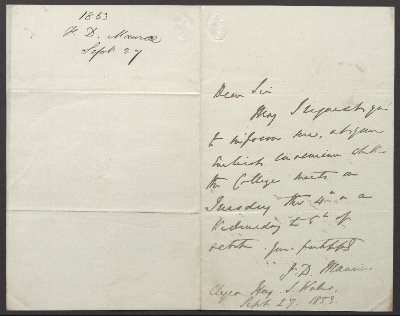 1853
F. D. Maurice
Sept 27
Dear Sir
May I request you
to inform me, at your
earliest convenience whether
the College meets on
Tuesday the 4th or on
Wednesday the 5th of
October
F. D. Maurice
Hay. S. Wales.
Sept 27. 1853.